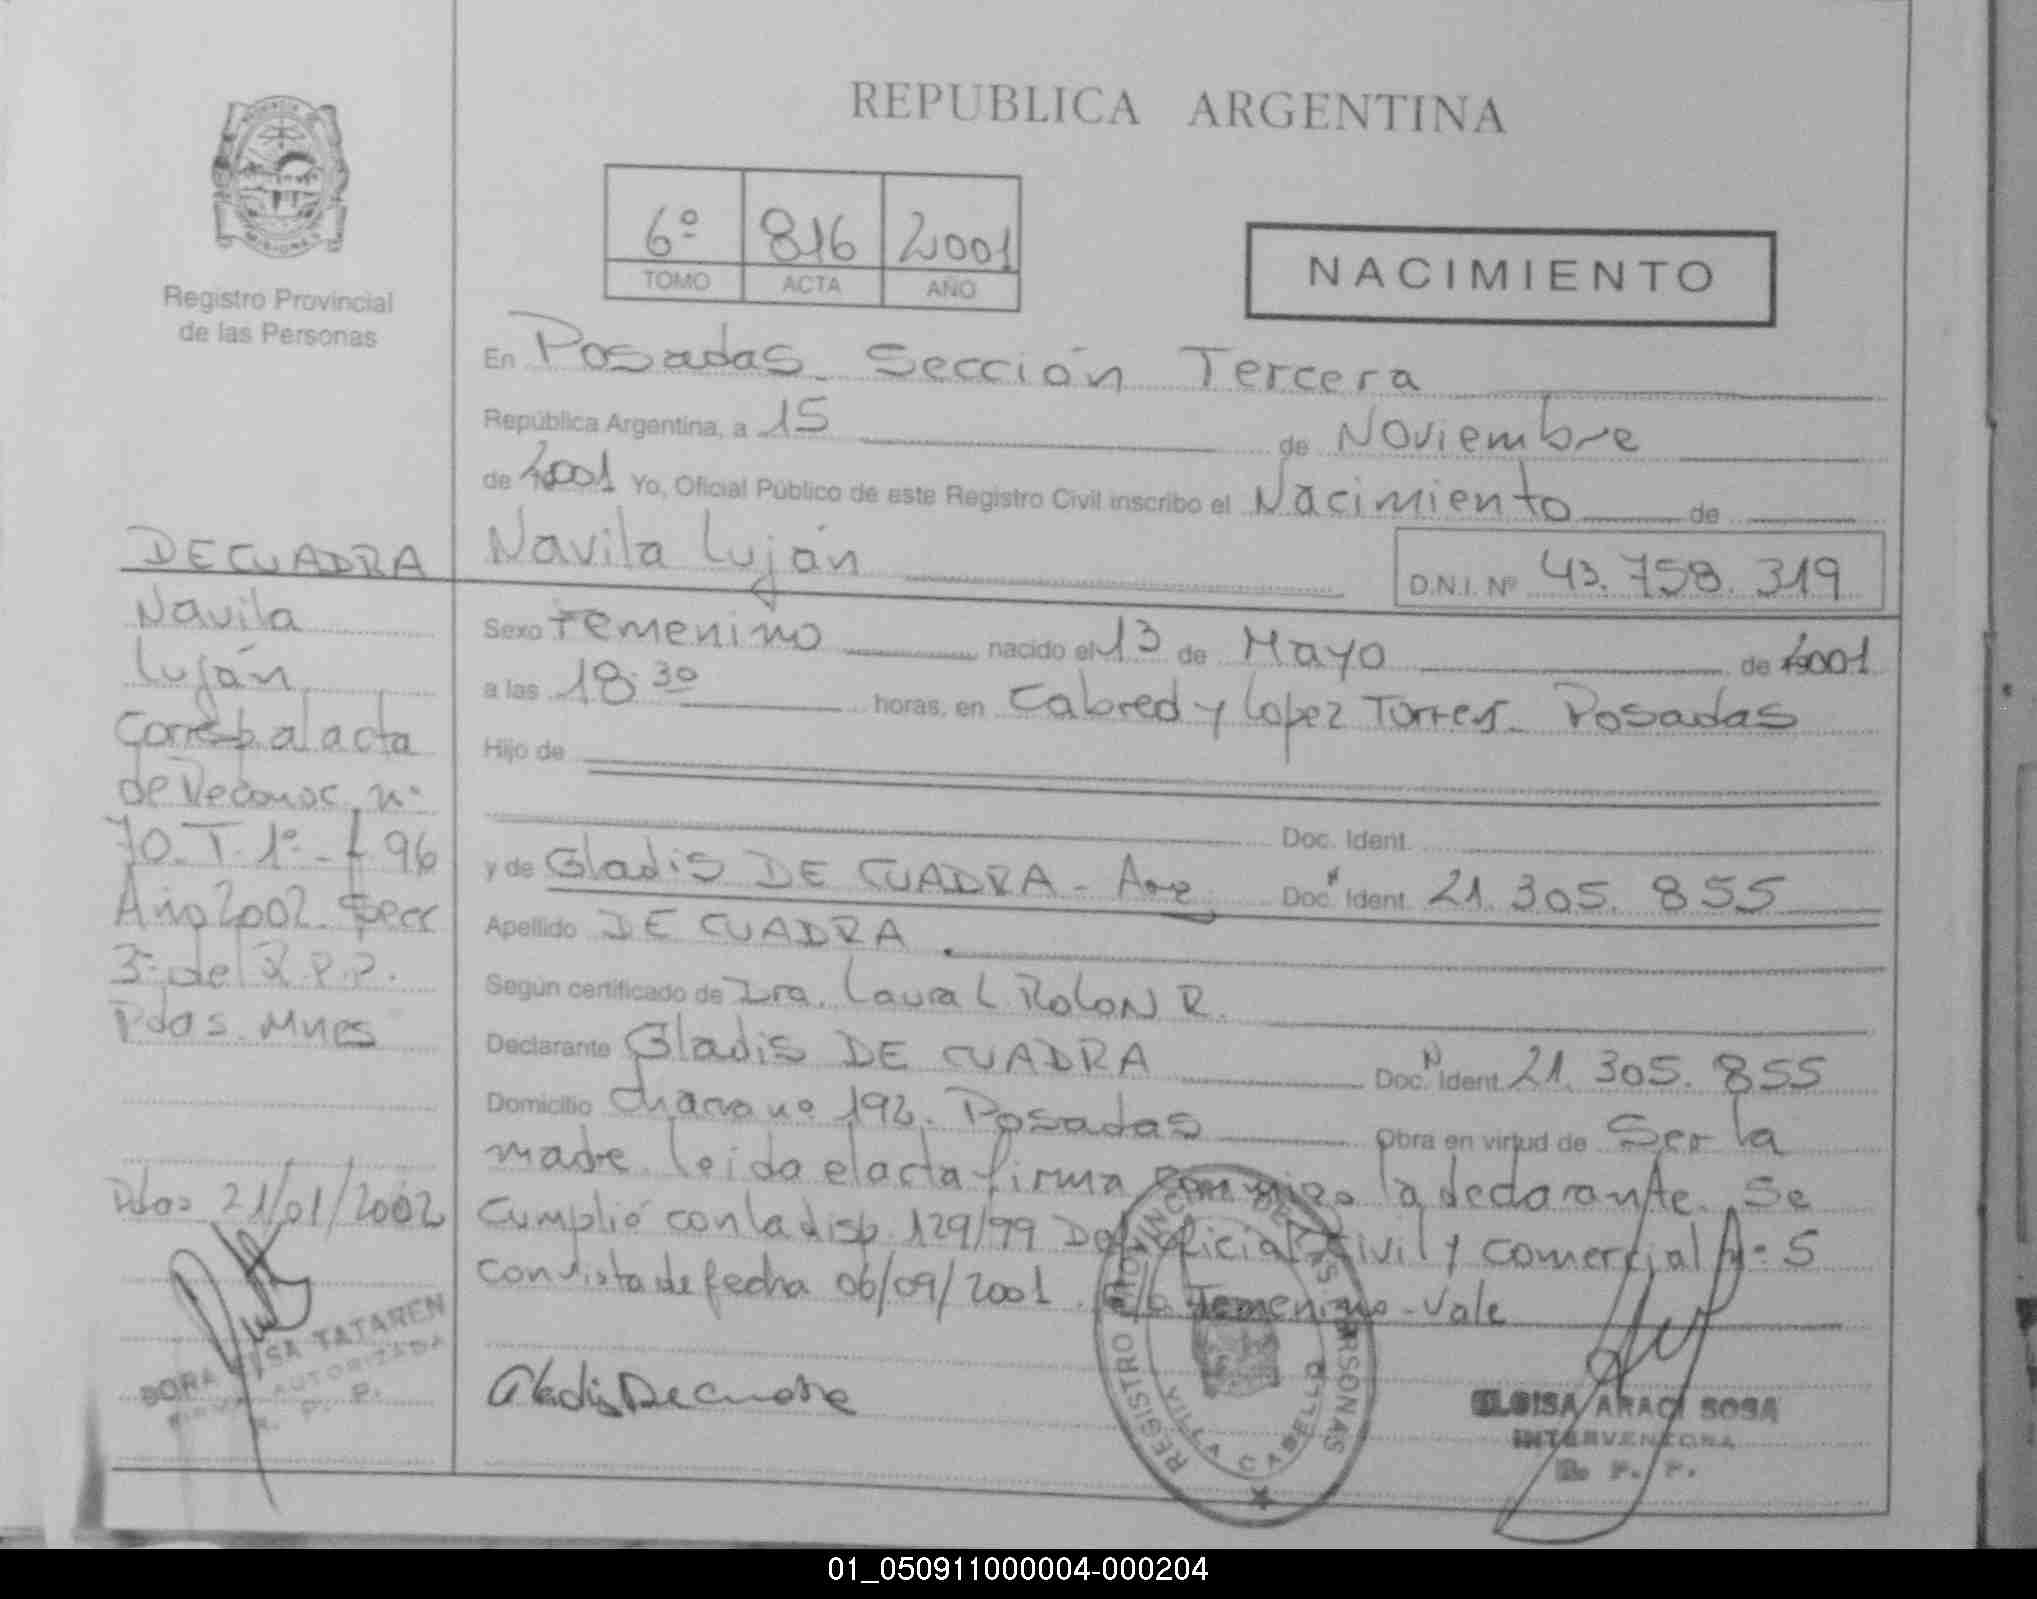 REPUBLICA ARGENTINA
6º 816 2001
TOMO ACTA AÑO
NACIMIENTO
Registro Provincial
de las Personas
En Posadas Sección Tercera
República Argentina, a 15 de Noviembre
de 2001 Yo, Oficial Público de este Registro Civil inscribo el Nacimiento de
Navila Luján D.N.I. Nº 43.758.319
Sexo Femenino nacido el 13 de Mayo de 2001
a las 18:30 horas, en Cabred y Lopez Torres - Posadas
Hijo de
Doc. Ident.
y de Gladis DE CUADRA - Arg. Doc. Ident. 21.305.855
Apellido DE CUADRA.
Según certificado de Dra. Laura L Rolon R.
Declarante Gladis DE CUADRA Doc. Ident. 21.305.855
Domicilio Chacra nº 192. Posadas Obra en virtud de Ser la
madre. Leida el acta firma conmigo la declarante. Se
Cumplió con la disp. 129/99 Def. Oficial Civil y Comercial Nº 5
con vista de fecha 06/09/2001. Femenino - Vale
Gladis De Cuadra
REGISTRO PROVINCIAL DE LAS PERSONAS
VILLA CABELLO
ELOISA ARACI SOSA
INTERVENTORA
R. P. P.
DE CUADRA
Navila
Luján
Corresp. al acta
de Reconoc. nº
70. T. 1º - f 96
Año 2002. Secc
3ª del R.P.P.
Pdas. Mnes
Pdas 21/01/2002
TATAREN
FIRMA AUTORIZADA
R. P. P.
01_050911000004-000204